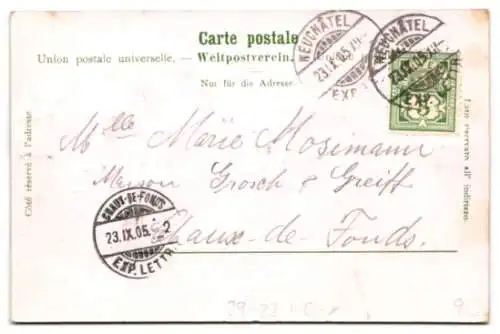 Carte postale
Union postale universelle. — Weltpostverein.
Nur für die Adresse
Côté réservé à l'adresse
Lato riservato all' indirizzo.
NEUCHÂTEL
23.IX.05
EXP.
NEUCHÂTEL
23.IX.05
EXP. LETTR
Mlle Marie Mosimann
Maison Grosch & Greiff
Chaux-de-Fonds.
CHAUX-DE-FONDS
23.IX.05.
EXP. LETTR